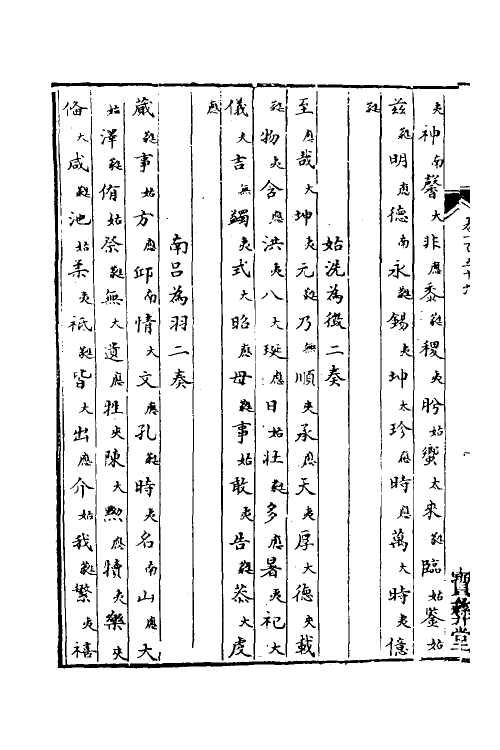 夾神南馨大非應黍蕤稷夾肸姑蠁太來蕤臨姑鉴姑
兹蕤明應德南永蕤錫夾坤太珍應時應萬大時夾億
蕤
姑洗為徵二奏
至應哉大坤夾元蕤乃無順夾承應天夾厚大德夾載
蕤物夾含應洪夾八大埏應日姑壯蕤多應暑夾祀大
儀夾吉無蠲夾式大昭應毋蕤事姑敢夾告蕤恭大虔
應
南吕為羽二奏
蕆蕤事姑方應邱南情大文應孔蕤時夾名南山應大
姑澤蕤侑姑祭蕤無大遺應牲夾陳大黝應犢夾樂夾
俻大咸蕤池姑柔夾祇蕤皆大出應介姑我蕤繁夾禧
寶彝堂